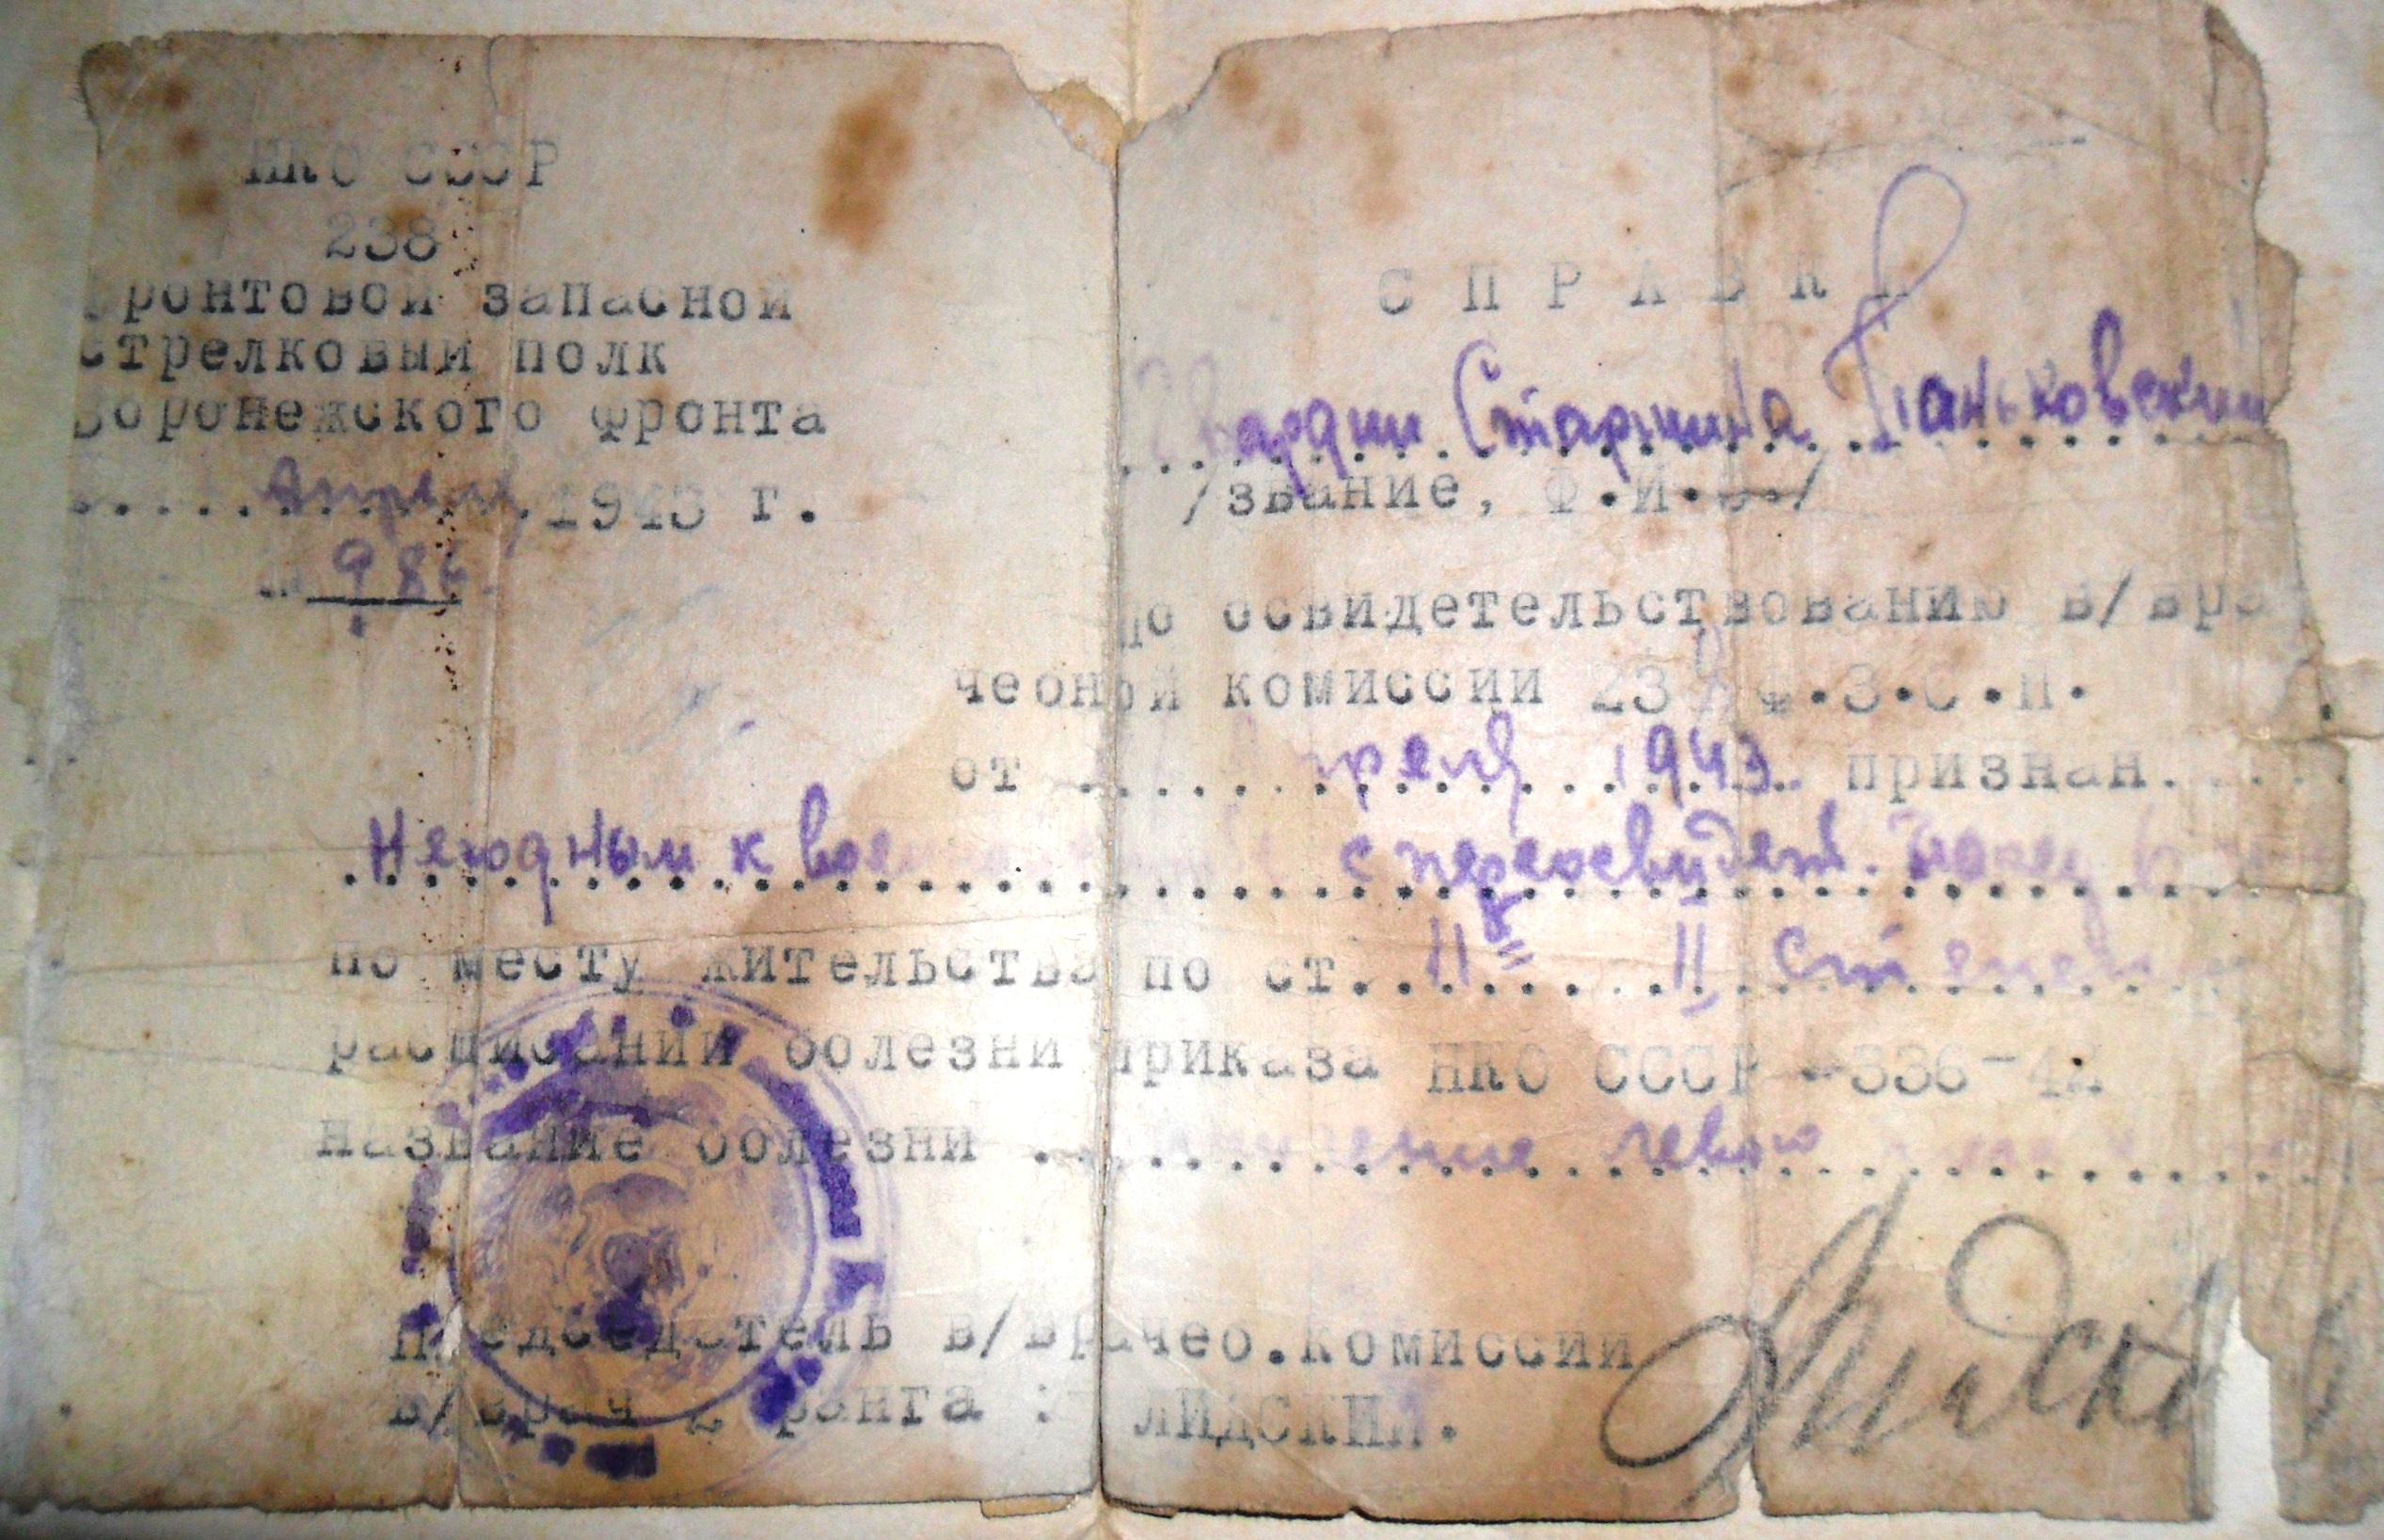 НКО СССР
238
фронтовой запасной
стрелковый полк
Воронежского фронта
..... Апреля 1943 г.
№ 986
С П Р А В К А
Гвардии Старшина Паньковский
/звание, Ф.И.О./
по освидетельствованию в/вра
чебной комиссии 238 Ф.З.С.П.
от ..... Апреля 1943. признан.....
Негодным к с переосвидет. через 6
по месту жительства по ст. 11 II степени
расписаний болезни приказа НКО СССР -336-42
название болезни левого
Председатель в/врачеб.комиссии
в/врач 2 ранга : ЛИДСКИЙ.
Лидский